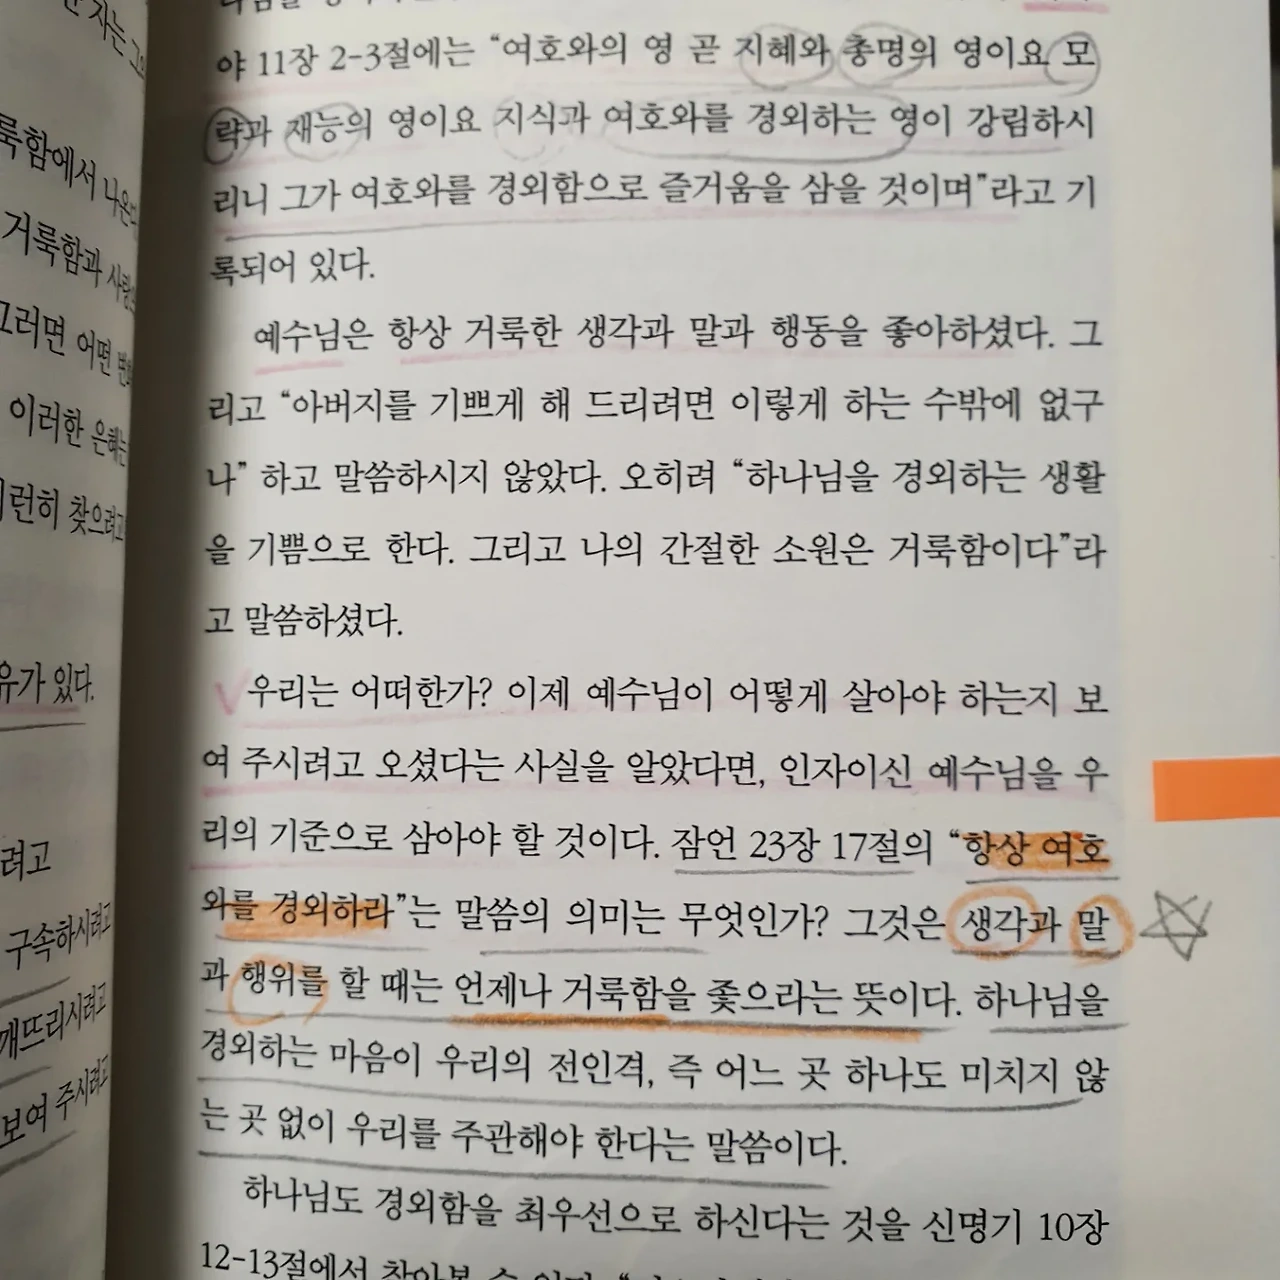 야 11장 2-3절에는 “여호와의 영 곧 지혜와 총명의 영이요 모
략과 재능의 영이요 지식과 여호와를 경외하는 영이 강림하시
리니 그가 여호와를 경외함으로 즐거움을 삼을 것이며”라고 기
록되어 있다.
예수님은 항상 거룩한 생각과 말과 행동을 좋아하셨다. 그
리고 “아버지를 기쁘게 해 드리려면 이렇게 하는 수밖에 없구
나” 하고 말씀하시지 않았다. 오히려 “하나님을 경외하는 생활
을 기쁨으로 한다. 그리고 나의 간절한 소원은 거룩함이다”라
고 말씀하셨다.
우리는 어떠한가? 이제 예수님이 어떻게 살아야 하는지 보
여 주시려고 오셨다는 사실을 알았다면, 인자이신 예수님을 우
리의 기준으로 삼아야 할 것이다. 잠언 23장 17절의 “항상 여호
와를 경외하라”는 말씀의 의미는 무엇인가? 그것은 생각과 말
과 행위를 할 때는 언제나 거룩함을 좇으라는 뜻이다. 하나님을
경외하는 마음이 우리의 전인격, 즉 어느 곳 하나도 미치지 않
는 곳 없이 우리를 주관해야 한다는 말씀이다.
하나님도 경외함을 최우선으로 하신다는 것을 신명기 10장
12-13절에서
룩함에서
거룩함과
그러면 어떤
이러한 은혜는
찾으려고
유가 있다.
려고
구속하시려고
깨뜨리시려고
보여 주시려고